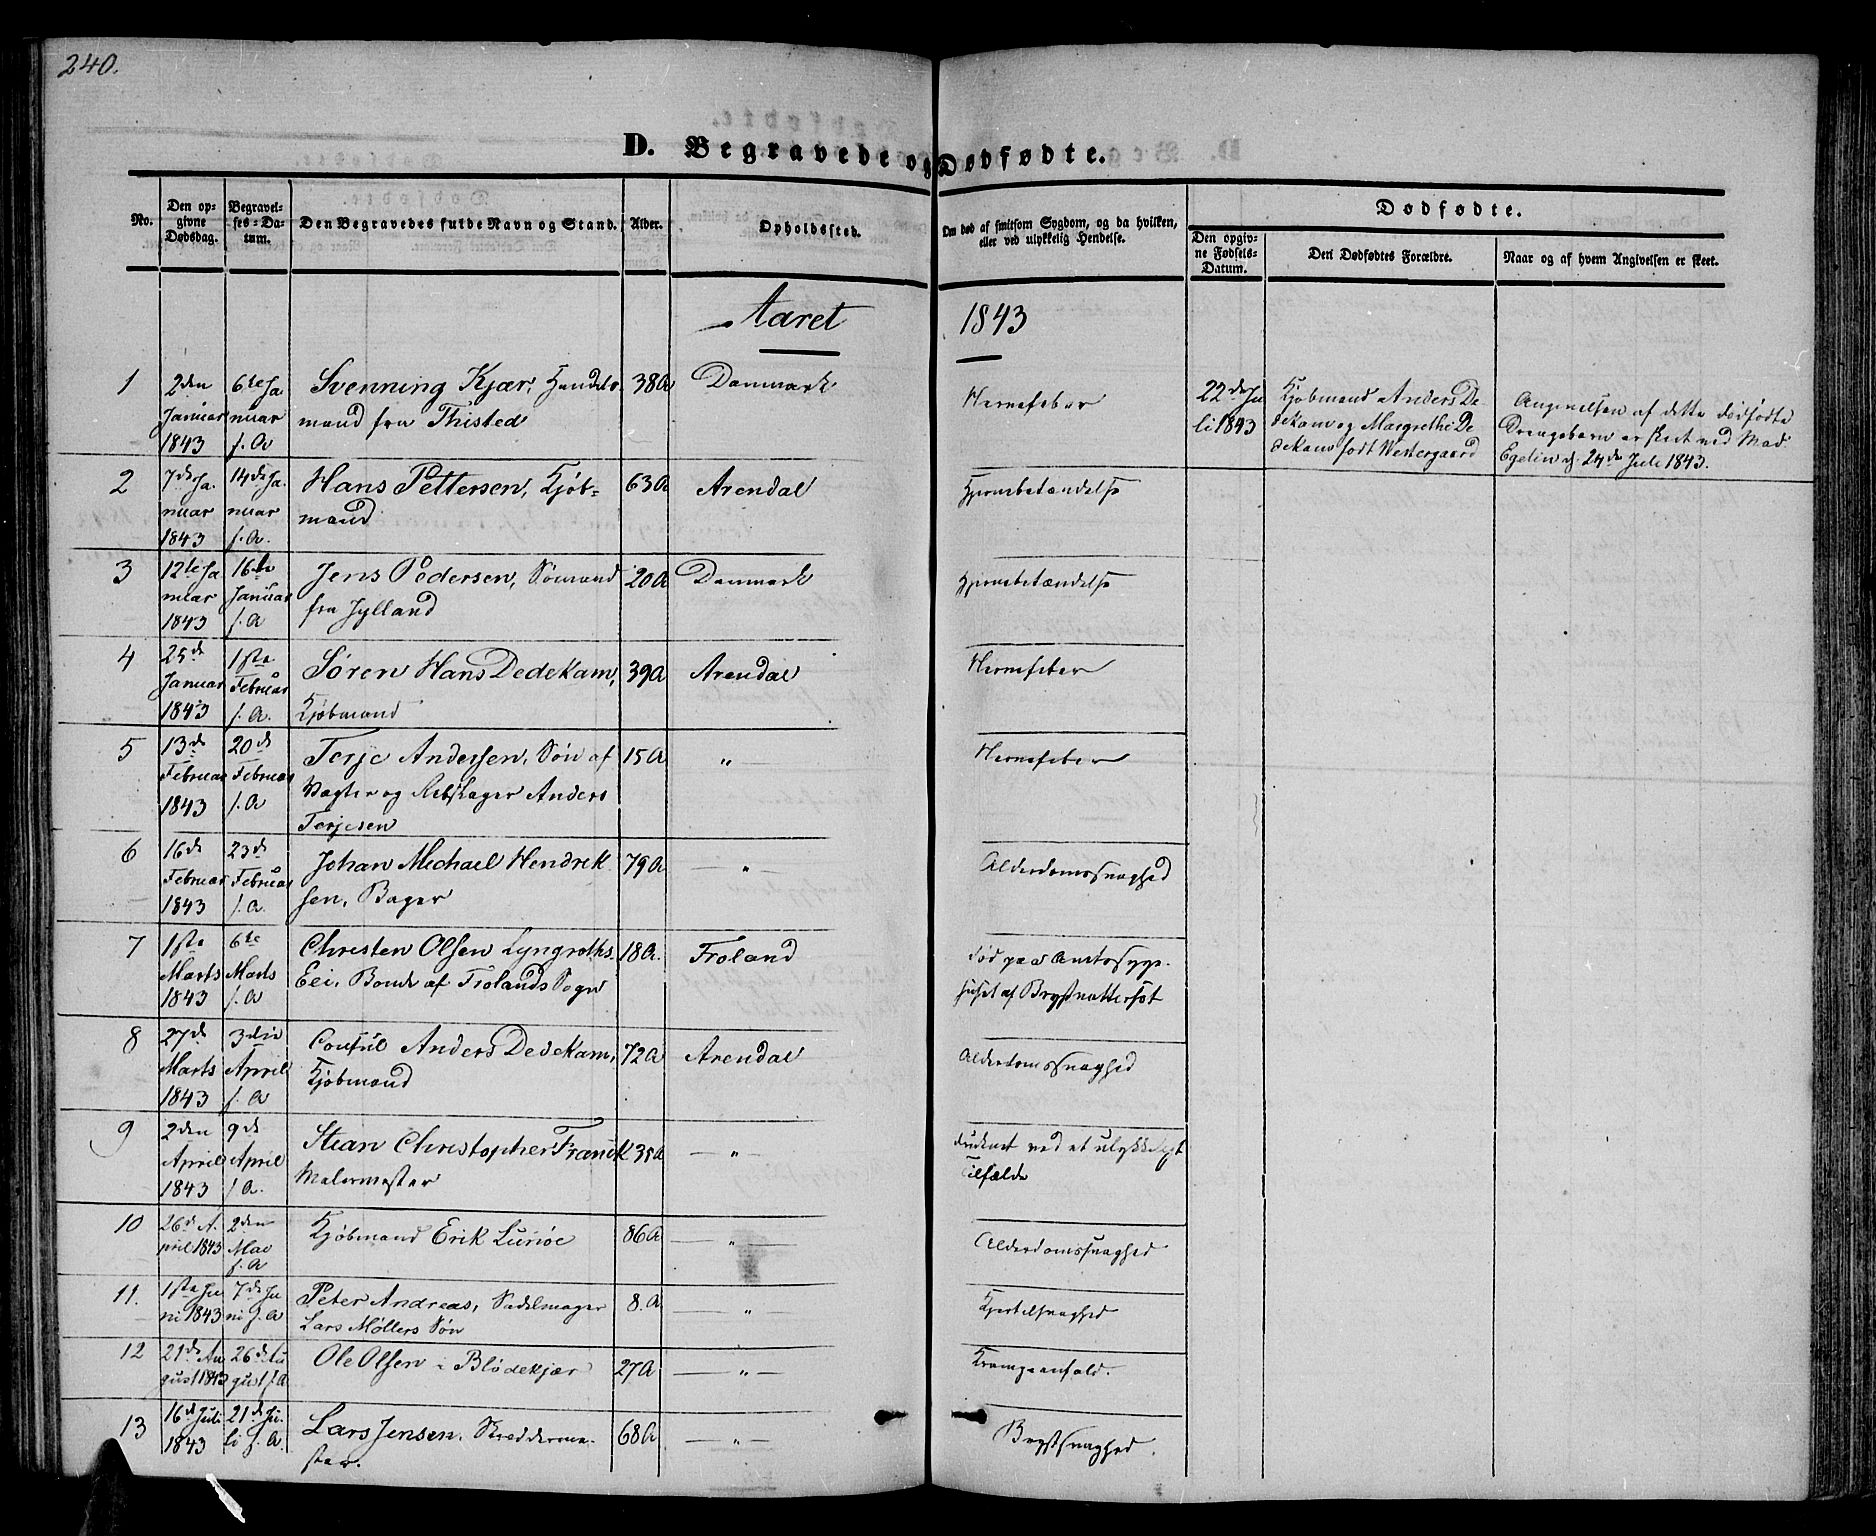 240.
D. Begravede og Dødfødte.
No.
Den op-
givne
Dødsdag.
Begravel-
ses-Da-
tum.
Den Begravedes fulde Navn og Stand.
Alder.
Opholdssted.
Om død af smitsom Sygdom, og da hvilken,
eller ved ulykkelig Hendelse.
Dødfødte.
Den opgiv-
ne Fødsels-
Datum.
Den Dødfødtes Forældre.
Naar og af hvem Angivelsen er skeet.
Aaret 1843
1
2den
Januar
1843
6te Ja
nuar
s. A
Svenning Kjær, Handels
mand fra Thisted
38 A
Danmark
Nervefeber
22de Ju
li 1843
Kjøbmand Anders De-
dekam og Margrethe De
dekam født Westergaard
Angivelsen af dette dødfødte
Drengebarn er skeet ved Mad
Egelin d. 24de Juli 1843.
2
7de Ja.
nuar
1843
14de Ja.
nuar
s. A.
Hans Pettersen, Kjøb-
mand
63 A
Arendal
Hjernebetændelse
3
12te Ja
nuar
1843
16de
Januar
s. A
Jens Pedersen, Sømand
fra Jylland
20 A
Danmark
Hjernebetændelse
4
25de
Januar
1843
1ste
Februar
s. A.
Søren Hans Dedekam,
Kjøbmand
39 A
Arendal
Nervefeber
5
13de
Februar
1843
20de
Februar
s. A
Terje Andersen, Søn af
Vægter og Rebslager Anders
Terjesen
15 A
"
Nervefeber
6
16de
Februar
1843
23de
Februar
s. A.
Johan Michael Hendrik
sen, Bager
79 A
— " —
Alderdomssvaghed
7
1ste
Marts
1843
6te
Marts
s. A
Christen Olsen Lyngroths
Eie, Bonde af Frolands Sogn
18 A.
Froland
Død paa Amtssyge-
huset af Brystvattersot
8
27de
Marts
1843
3die
April
s. A
Consul Anders Dedekam,
Kjøbmand
72 A
Arendal
Alderdomssvaghed
9
2den
April
1843
9de
April
s A.
Stian Christopher Franck
Malermester
35 A
— " —
druknet ved et ulykkeligt
Tilfælde
10
26de A.
pril 1843
2den
Mai
s. A
Kjøbmand Erik Lunøe
86 A
— " —
Alderdomssvaghed
11.
1ste Ju
ni 1843
7de Ju
ni s. A
Peter Andreas, Sadelmager
Lars Møllers Søn
8. A
— " —
Kjertelsvaghed
12
21de Au
gust 1843
26de Au
gust s. A
Ole Olsen i Blødekjær
27 A
— " —
Krampeanfald.
13
16de Juli
1843
21de Ju.
li s. A.
Lars Jensen, Skrædderme-
ster.
68 A
— " —
Brystsvaghed.